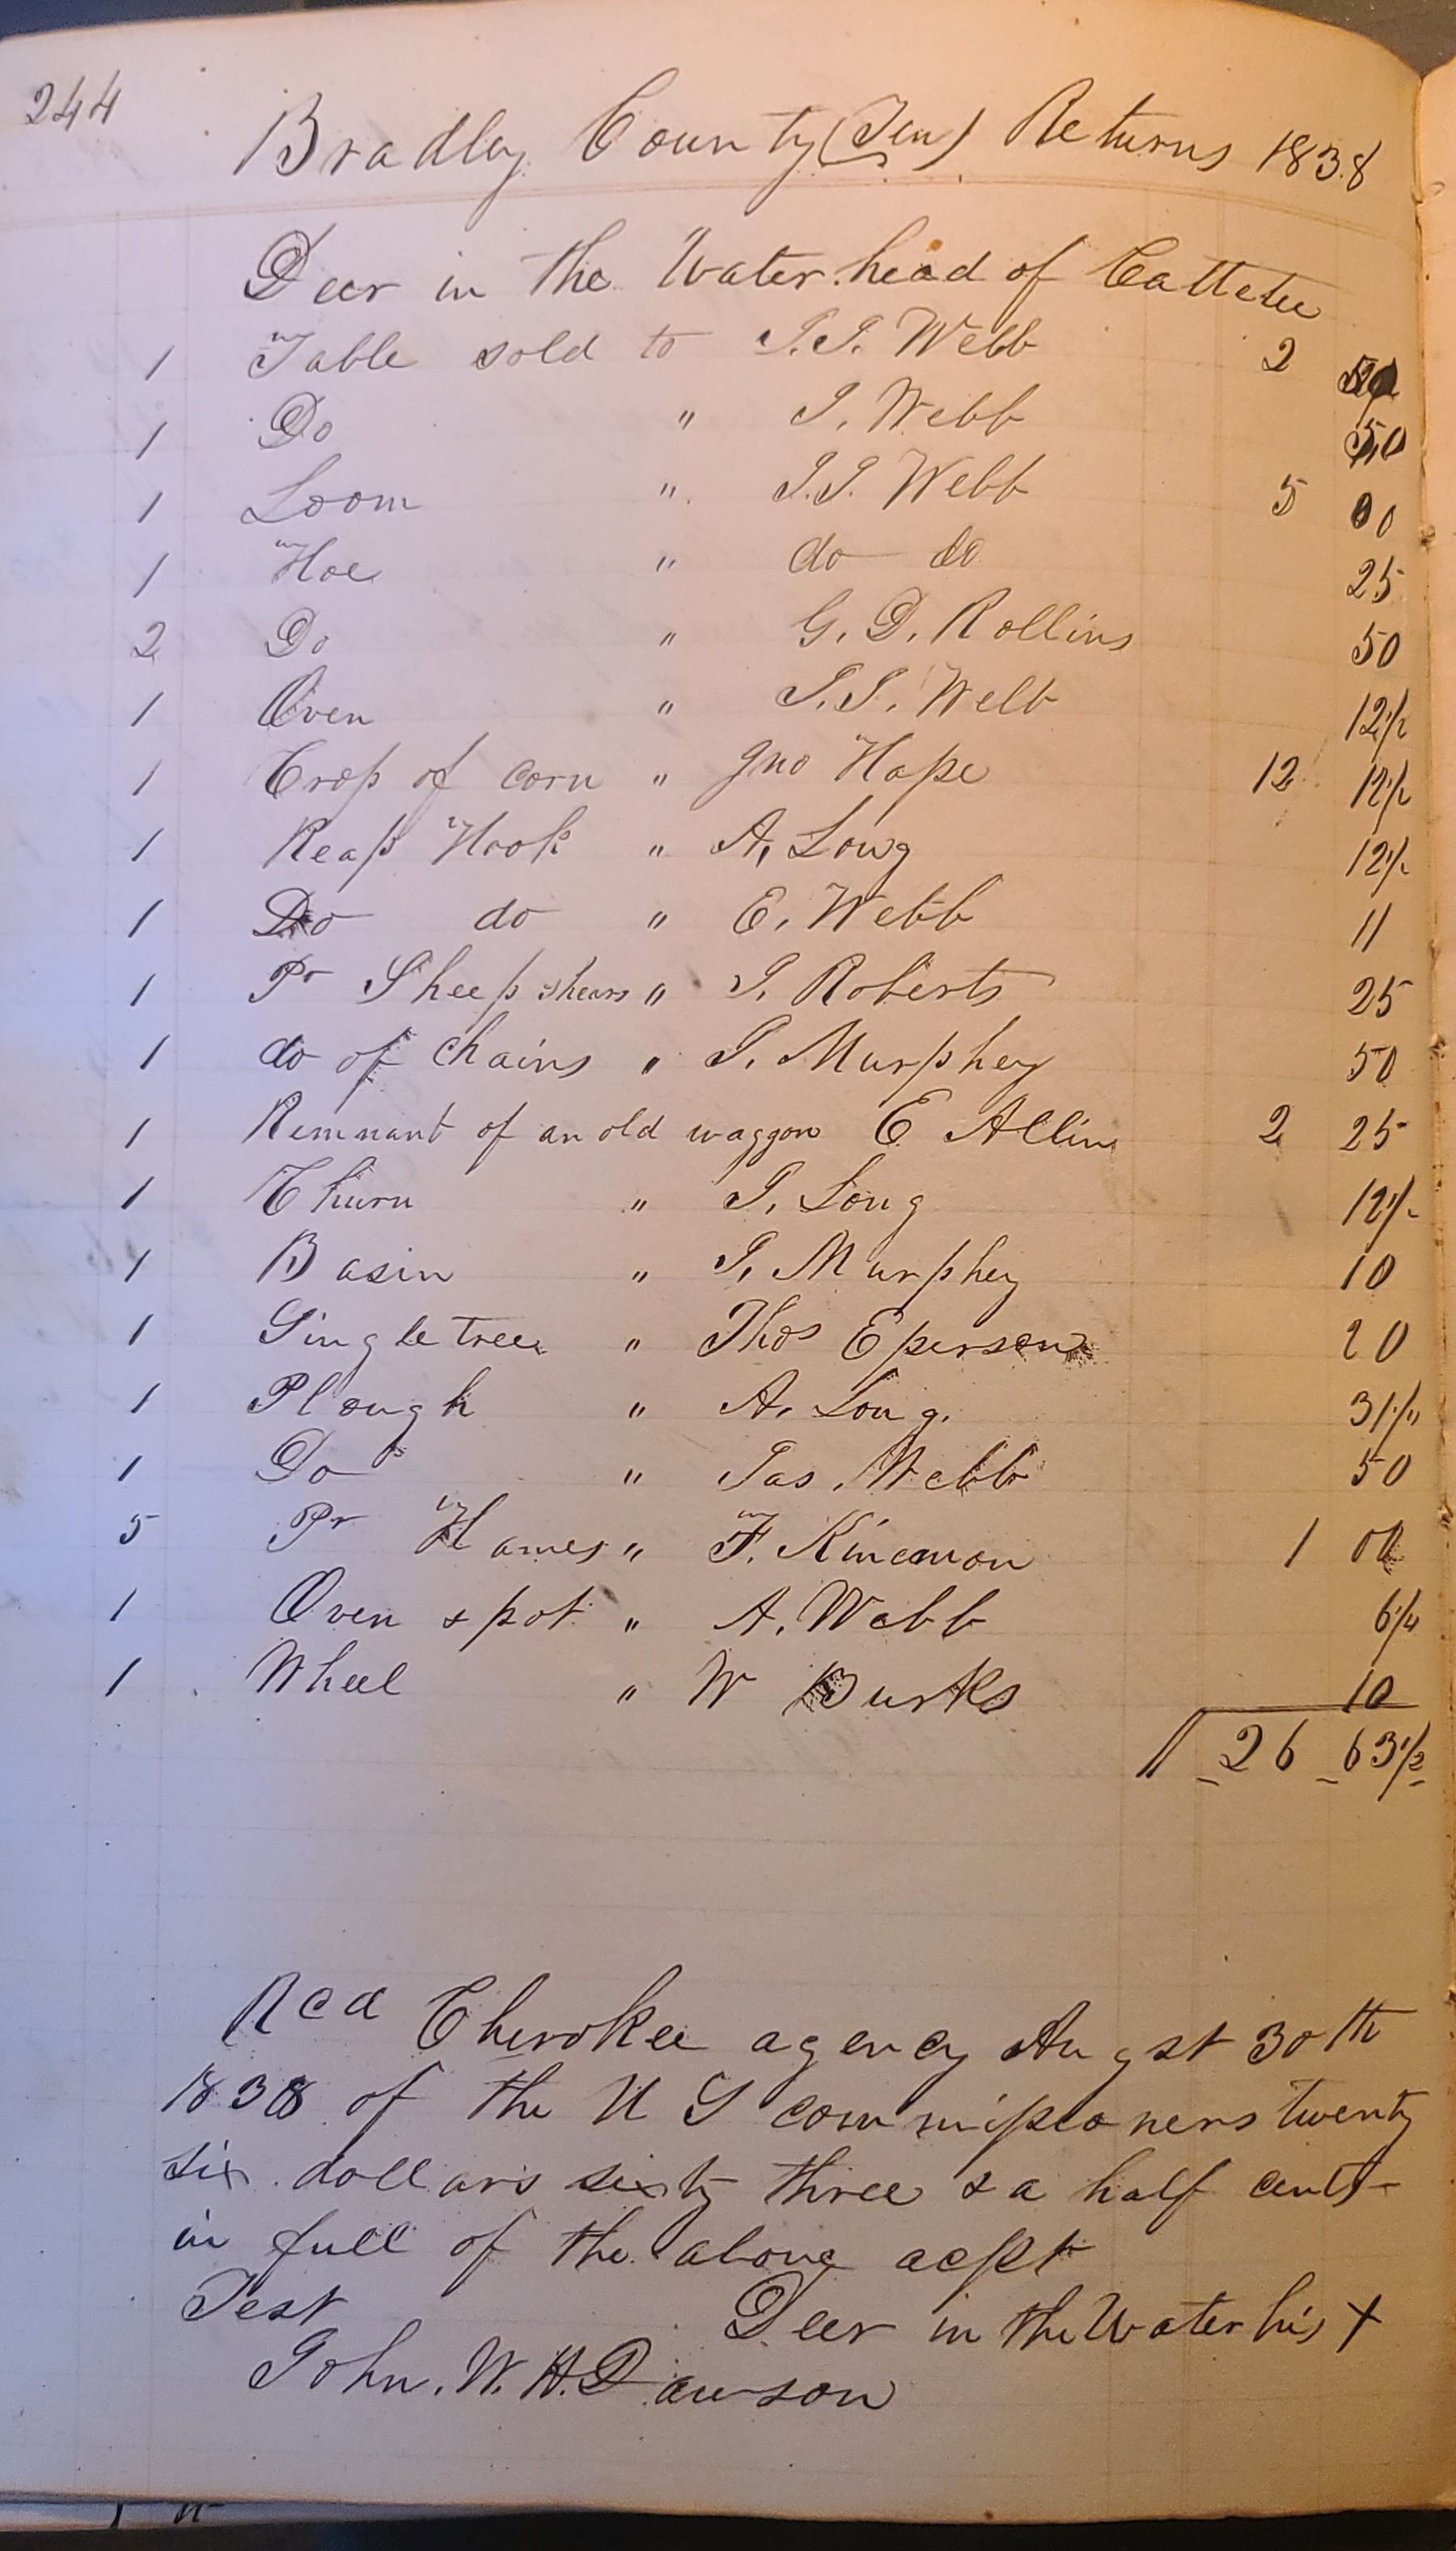 244
Bradley County (Ten) Returns 1838
Deer in the Water head of Cattetee
1 Table sold to J. J. Webb 2 50
1 Do " J. Webb 50
1 Loom " J. J. Webb 5 00
1 Hoe " do do 25
2 Do " G. D. Rollins 50
1 Oven " J. J. Webb 12 1/2
1 Crop of corn " Jno Hape 12 12 1/2
1 Reap Hook " A. Long 12 1/2
1 Do do " E. Webb 11
1 Pr Sheep shears " J. Roberts 25
1 do of chains " J. Murphey 50
1 Remnant of an old waggon E Allin 2 25
1 Churn " J. Long 12 1/2
1 Basin " J. Murphey 10
1 Singletree " Thos Eperson 20
1 Plough " A. Long. 31 1/4
1 Do " Jas. Webb 50
5 Pr Hames " F. Kincannon 1 00
1 Oven & pot " A. Webb 6 1/4
1 Wheel " W Burks 10
26 63 1/2
Recd Cherokee agency Augst 30th
1838 of the U S commissioners twenty
six dollars sixty three & a half cents
in full of the above acpt
Test Deer in the Water his X
John. W. H. Dawson